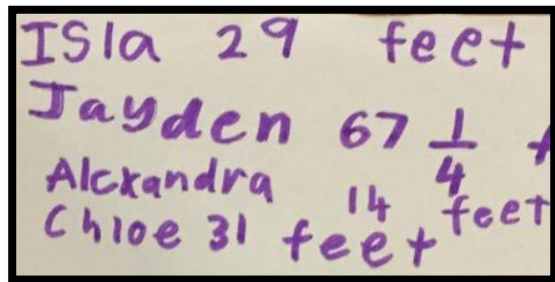 Isla 29 feet
Jayden 67 1/4
Alexandra 14 feet
Chloe 31 feet